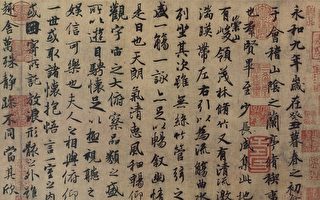 永和九年歲在癸丑暮春之初
于會稽山陰之蘭亭脩稧事
也群賢畢至少長咸集此地
有崇山峻領茂林脩竹又有清流激
湍暎帶左右引以為流觴曲水
列坐其次雖無絲竹管弦之
盛一觴一詠亦足以暢敘幽情
是日也天朗氣清惠風和暢仰
觀宇宙之大俯察品類之盛
所以遊目騁懷足以極視聽之
娛信可樂也夫人之相與俯仰
一世或取諸懷抱悟言一室之內
或因寄所託放浪形骸之外雖
趣舍萬殊靜躁不同當其欣